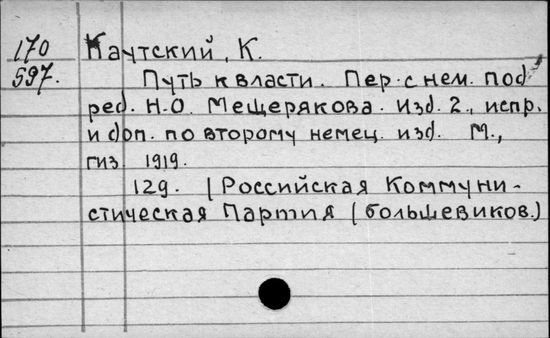 170
597.
Каутский, К.
Путь к власти. Пер. с нем. под
ред. Н.О. Мещерякова. Изд. 2., испр.
и доп. по второму немец. изд. М.,
гиз 1919.
129. | Российская Коммуни-
стическая Партия (большевиков.)